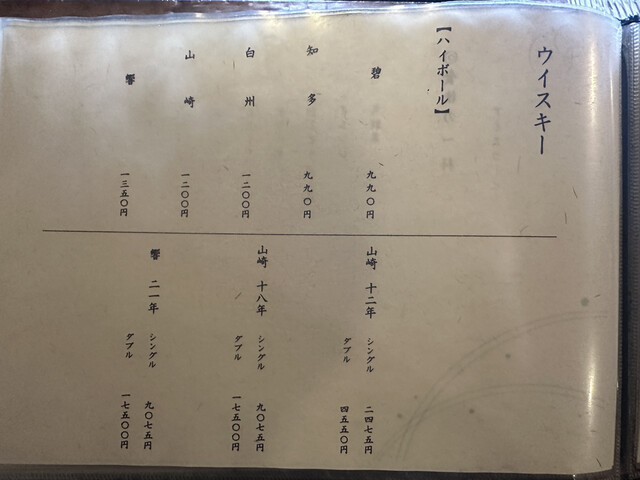 ウイスキー
【ハイボール】
碧 九九〇円
知多 九九〇円
白州 一二〇〇円
山崎 一二〇〇円
響 一三五〇円
山崎 十二年 シングル 二四七五円
ダブル 四五五〇円
山崎 十八年 シングル 九〇七五円
ダブル 一七五〇〇円
響 二一年 シングル 九〇七五円
ダブル 一七五〇〇円